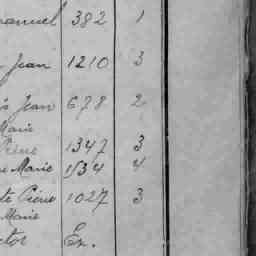 anuel 382 1
Jean 1210 3
s Jean 678 2
Marie
Pierre 1347 3
Marie 1534 4
te Pierre 1027 3
Marie
ctor Ex.